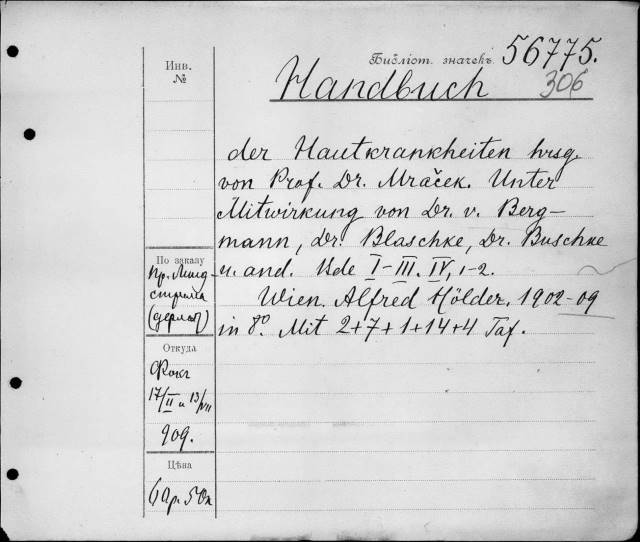 Инв.
№
Библіот. значекъ 56775.
306
Handbuch
der Hautkrankheiten hrsg.
von Prof. Dr. Mraček. Unter
Mitwirkung von Dr. v. Berg-
mann, Dr. Blaschke, Dr. Buschke
u. and. Bde I-III. IV, 1-2.
Wien. Alfred Hölder. 1902-09
in 8º. Mit 2+7+1+14+4 Taf.
По заказу
пр. Линд-
стрема
Откуда
Фокк
17/II и 13/VII
909.
Цѣна
50к